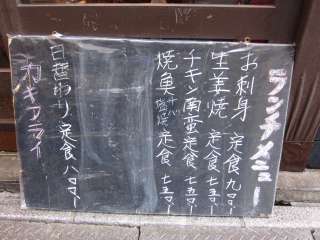 ランチメニュー
お刺身 定食 九〇〇ー
生姜焼 定食 七五〇ー
チキン南蛮定食 七五〇ー
焼魚 サバ 塩焼 定食 七五〇ー
日替わり定食 八〇〇ー
カキフライ